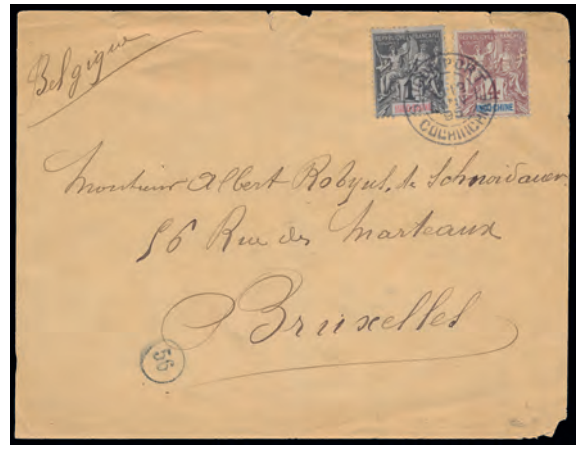 Belgique
RÉPUBLIQUE FRANÇAISE
RÉPUBLIQUE FRANÇAISE
1
4
INDO-CHINE
COCHINCHINE
Monsieur Albert Robyns. de Schneidauer.
56 Rue des Marteaux
Bruxelles
56